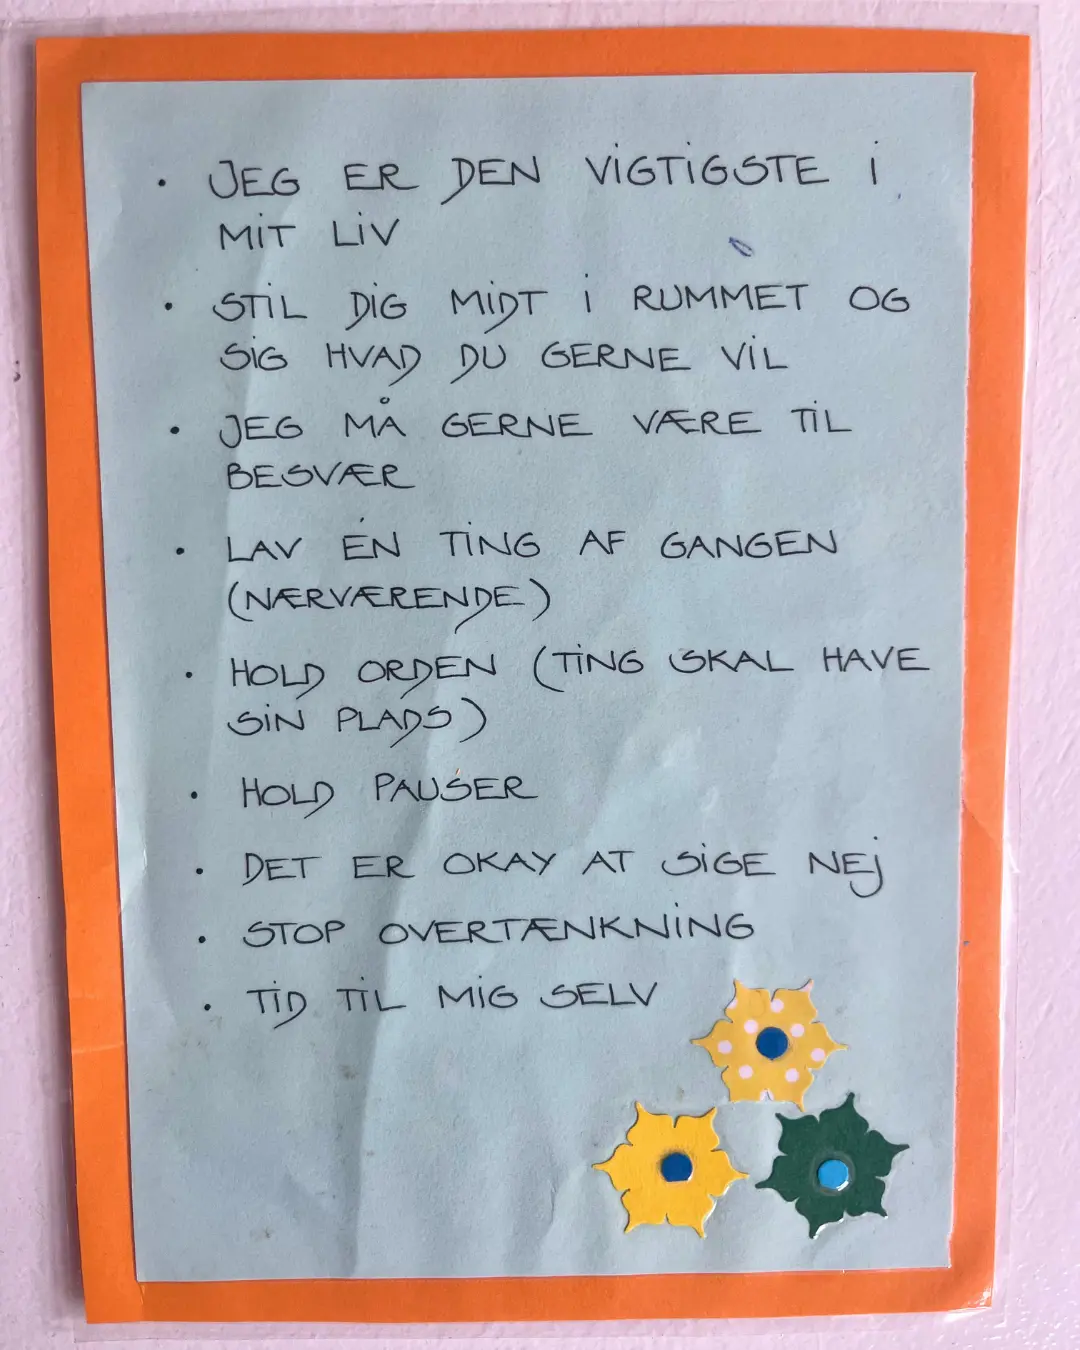 • JEG ER DEN VIGTIGSTE I
MIT LIV
• STIL DIG MIDT I RUMMET OG
SIG HVAD DU GERNE VIL
• JEG MÅ GERNE VÆRE TIL
BESVÆR
• LAV ÉN TING AF GANGEN
(NÆRVÆRENDE)
• HOLD ORDEN (TING SKAL HAVE
SIN PLADS)
• HOLD PAUSER
• DET ER OKAY AT SIGE NEJ
• STOP OVERTÆNKNING
• TID TIL MIG SELV